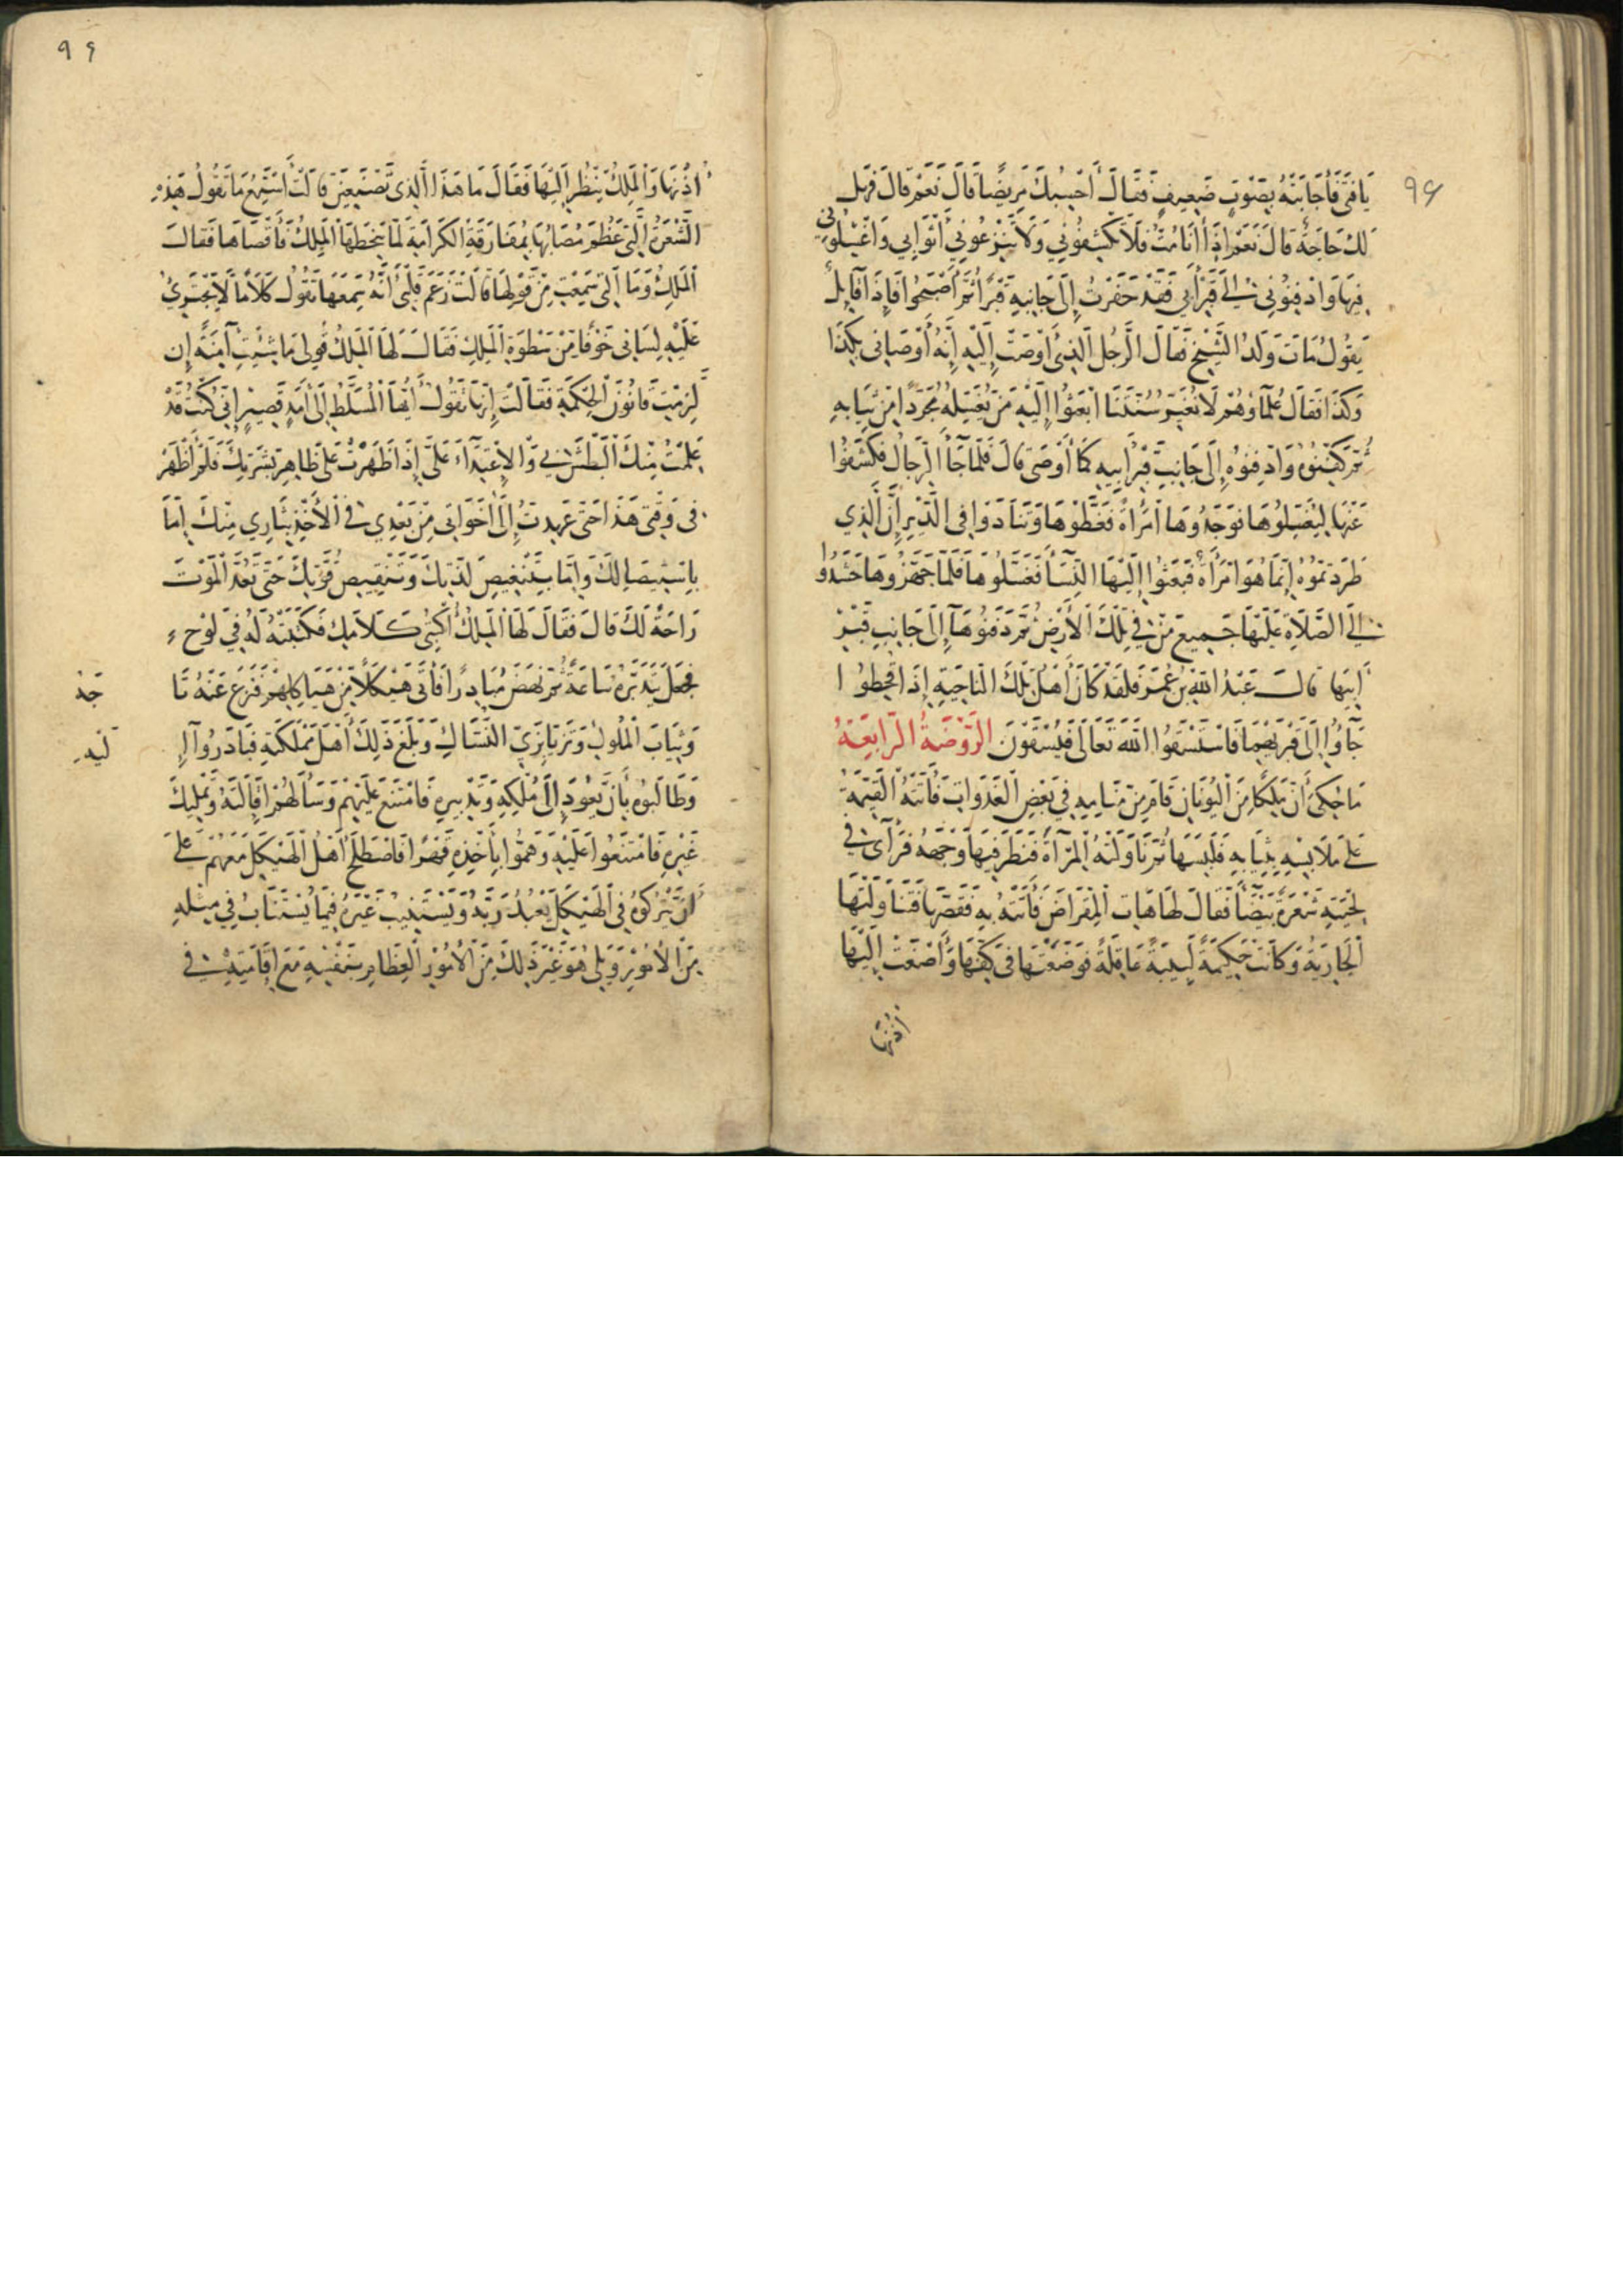 ٩٤
يَا فَتَى فَأَجَابَتْهُ بِصَوْتٍ ضَعِيفٍ فَقَالَ أَحْسِبُكَ مَرِيضًا قَالَ نَعَمْ قَالَ فَهَلْ
لَكَ حَاجَةٌ قَالَ نَعَمْ إِذَا أَنَا مُتُّ فَلَا تَكْشِفُونِي وَلَا تَنْزِعُونِي أَثْوَابِي وَاغْسِلُونِي
فِيهَا وَادْفِنُونِي إِلَى قَبْرِ أَبِي فَقَدْ حَفَرْتُ إِلَى جَانِبِهِ قَبْرًا ثُمَّ أَصْبَحُوا فَإِذَا قَائِلٌ
يَقُولُ مَاتَ وَلَدُ الشَّيْخِ فَقَالَ الرَّجُلُ الَّذِي أَوْصَتْ إِلَيْهِ إِنَّهُ أَوْصَانِي بِكَذَا
وَكَذَا فَقَالَ عُلَمَاؤُهُمْ لَا نُغَيِّرُ سُنَّتَنَا ابْعَثُوا إِلَيْهِ مَنْ يُغَسِّلُهُ مُجَرَّدًا مِنْ ثِيَابِهِ
ثُمَّ كَفِّنُوهُ وَادْفِنُوهُ إِلَى جَانِبِ قَبْرِ أَبِيهِ كَمَا أَوْصَى قَالَ فَلَمَّا جَاءَ الرِّجَالُ فَكَشَفُوا
عَنْهَا لِيُغَسِّلُوهَا فَوَجَدُوهَا امْرَأَةً فَغَطَّوْهَا وَتَنَادَوْا فِي الدَّيْرِ إِنَّ الَّذِي
طَرَدْتُمُوهُ إِنَّمَا هُوَ امْرَأَةٌ فَبَعَثُوا إِلَيْهَا النِّسَاءَ فَغَسَّلُوهَا فَلَمَّا جَهَّزُوهَا حَشَدُوا
إِلَى الصَّلَاةِ عَلَيْهَا جَمِيعُ مَنْ فِي تِلْكَ الْأَرْضِ ثُمَّ دَفَنُوهَا إِلَى جَانِبِ قَبْرِ
أَبِيهَا قَالَ عَبْدُ اللهِ بْنُ عُمَرَ فَلَقَدْ كَانَ أَهْلُ تِلْكَ النَّاحِيَةِ إِذَا قَحَطُوا
جَاؤُا إِلَى قَبْرَيْهِمَا فَاسْتَسْقَوُا اللَّهَ تَعَالَى فَيُسْقَوْنَ الرَّوْضَةُ الرَّابِعَةُ
مَا حُكِيَ أَنَّ مَلِكًا مِنَ الْيُونَانِ قَامَ مِنْ مَنَامِهِ فِي بَعْضِ الْغَدَوَاتِ فَأَتَتْهُ الْقَيِّمَةُ
عَلَى مَلَابِسِهِ بِثِيَابِهِ فَلَبِسَهَا ثُمَّ نَاوَلَتْهُ الْمِرْآةَ فَنَظَرَ فِيهَا وَجْهَهُ فَرَآى فِي
لِحْيَتِهِ شَعْرَةً بَيْضَاءَ فَقَالَ لَهَا هَاتِ الْمِقْرَاضَ فَأَتَتْهُ بِهِ فَقَصَّهَا فَتَنَاوَلَتْهَا
الْجَارِيَةُ وَكَانَتْ حَكِيمَةً لَبِيبَةً عَاقِلَةً فَوَضَعَتْهَا فِي كَفِّهَا وَأَصْغَتْ إِلَيْهَا
أُذُنَهَا
٩٤
أُذُنَهَا وَالْمَلِكُ يَنْظُرُ إِلَيْهَا فَقَالَ مَا هَذَا الَّذِي تَصْنَعِينَ قَالَتْ أَسْتَمِعُ مَا تَقُولُ هَذِهِ
الشَّعْرَةُ الَّتِي عَظُمَ مُصَابُهَا بِمُفَارَقَةِ الْكَرَامَةِ لَمَّا سَخِطَهَا الْمَلِكُ فَأَقْصَاهَا فَقَالَ
الْمَلِكُ وَمَا الَّذِي سَمِعْتِ مِنْ قَوْلِهَا قَالَتْ زَعَمَ قَلْبِي أَنَّهُ سَمِعَهَا تَقُولُ كَلَامًا لَا يَجْتَرِئُ
عَلَيْهِ لِسَانِي خَوْفًا مِنْ سَطْوَةِ الْمَلِكِ فَقَالَ لَهَا الْمَلِكُ قُولِي مَا شِئْتِ آمِنَةً إِنْ
لَزِمْتِ قَانُونَ الْحِكْمَةِ فَقَالَتْ إِنَّهَا تَقُولُ أَيُّهَا الْمُسَلَّطُ إِلَى أَمَدٍ قَصِيرٍ إِنِّي كُنْتُ قَدْ
عَلِمْتُ مِنْكَ الْبَطْشَ بِي وَالِاعْتِدَاءَ عَلَيَّ إِذَا ظَهَرْتُ عَلَى ظَاهِرِ بَشَرَتِكَ فَلَمْ أَظْهَرْ
فِي وَقْتِي هَذَا حَتَّى عَهِدْتُ إِلَى أَخَوَاتِي مِنْ بَعْدِي فِي الْأَخْذِ بِثَارِي مِنْكَ إِمَّا
بِاسْتِيصَالِكَ وَإِمَّا بِتَنْغِيصِ لَذَّتِكَ وَتَنْقِيصِ قُوَّتِكَ حَتَّى تَعُدَّ الْمَوْتَ
رَاحَةً لَكَ قَالَ فَقَالَ لَهَا الْمَلِكُ أُكْتُبِي كَلَامَكِ فَكَتَبَتْهُ لَهُ فِي لَوْحٍ
فَجَعَلَ يَتَدَبَّرُهُ سَاعَةً ثُمَّ نَهَضَ مُبَادِرًا فَأَتَى هَيْكَلًا مِنْ هَيَاكِلِهِمْ فَنَزَعَ عَنْهُ تَا جَهُ
وَثِيَابَ الْمُلُوكِ وَتَزَيَّا بِزِيِّ النُّسَّاكِ وَبَلَغَ ذَلِكَ أَهْلَ مَمْلَكَتِهِ فَبَادَرُوا إِ لَيْهِ
وَطَالَبُوهُ بِأَنْ يَعُودَ إِلَى مُلْكِهِ وَتَدْبِيرِهِ فَامْتَنَعَ عَلَيْهِمْ وَسَأَلَهُمْ إِقَالَتَهُ وَتَمْلِيكَ
غَيْرِهِ فَامْتَنَعُوا عَلَيْهِ وَهَمُّوا بِأَخْذِهِ قَهْرًا فَاصْطَلَحَ أَهْلُ الْهَيْكَلِ مَعَهُمْ عَلَى
أَنْ يَتْرُكُوهُ فِي الْهَيْكَلِ يَعْبُدُ رَبَّهُ وَيَسْتَنِيبُ غَيْرَهُ فِيمَا يُسْتَنَابُ فِي مِثْلِهِ
مِنَ الْأُمُورِ وَيَلِي هُوَ غَيْرَ ذَلِكَ مِنَ الْأُمُورِ الْعِظَامِ بِنَفْسِهِ مَعَ إِقَامَتِهِ فِي